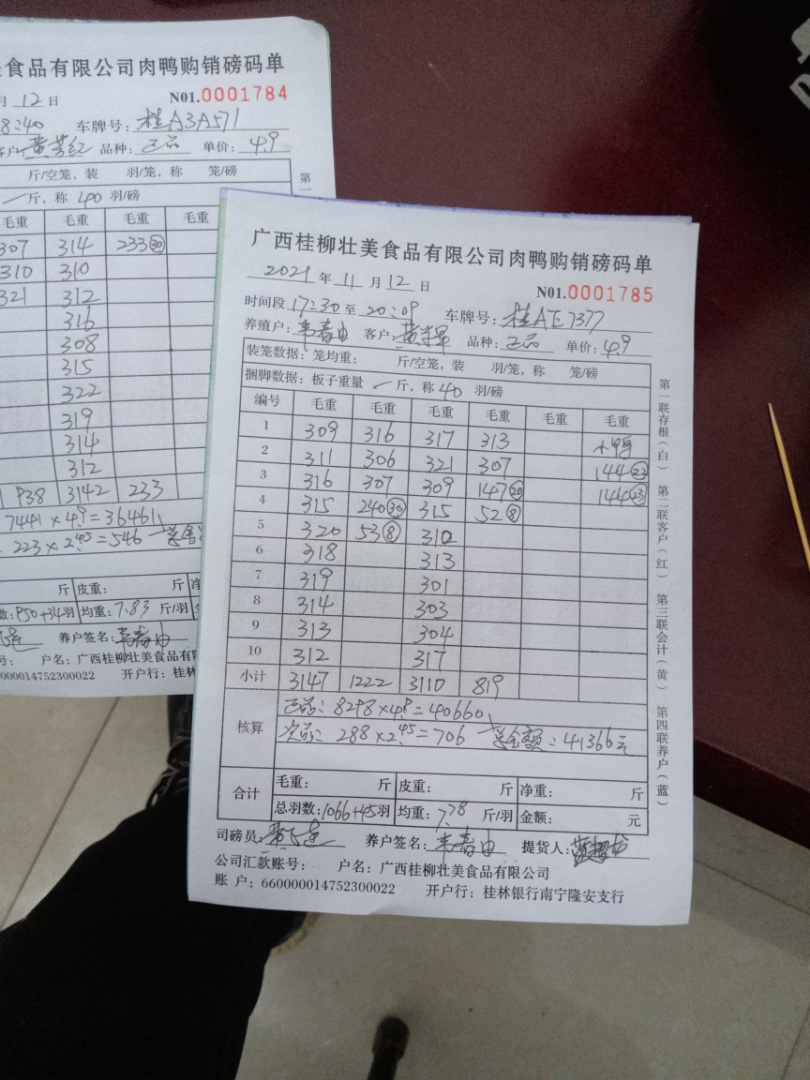 食品有限公司肉鸭购销磅码单
月 12 日 N01.0001784
8:40 车牌号: 桂A3A571
客户: 品种: 正品 单价: 4.9
斤/空笼, 装 羽/笼, 称 笼/磅
斤, 称 40 羽/磅
毛重 毛重 毛重 毛重
307 314 233(30)
310 310
321 312
316
308
315
322
319
314
312
938 3142 233
7441×4.9=36461
223×2.45=546
斤 皮重: 斤 净
数: 950+34羽 均重: 7.83 斤/羽
养户签名:
号: 户名: 广西桂柳壮美食品有
0000014752300022 开户行: 桂林
第一
广西桂柳壮美食品有限公司肉鸭购销磅码单
2021 年 11 月 12 日 N01.0001785
时间段 17:30 至 20:09 车牌号: 桂AE7377
养殖户: 韦春由 客户: 品种: 正品 单价: 4.9
装笼数据: 笼均重: 斤/空笼, 装 羽/笼, 称 笼/磅
捆脚数据: 板子重量 一 斤, 称 40 羽/磅
编号 毛重 毛重 毛重 毛重 毛重 毛重
1 309 316 317 313 小鸭
2 311 306 321 307 144(22)
3 316 307 309 147(20) 144(23)
4 315 240(30) 315 52(8)
5 320 53(8) 310
6 318 313
7 319 301
8 314 303
9 313 304
10 312 317
小计 3147 1222 3110 819
核算 正品: 8298×4.9=40660
次品: 288×2.45=706 总金额: 41366元
合计 毛重: 斤 皮重: 斤 净重: 斤
总羽数: 1066+45羽 均重: 7.78 斤/羽 金额: 元
司磅员: 养户签名: 韦春由 提货人:
公司汇款账号: 户名: 广西桂柳壮美食品有限公司
账 户: 660000014752300022 开户行: 桂林银行南宁隆安支行
第一联存根(白) 第二联客户(红) 第三联会计(黄) 第四联养户(蓝)